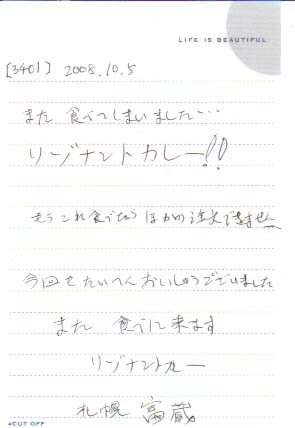 LIFE IS BEAUTIFUL
[3401] 2008.10.5
また 食べてしまいました…
リーゾナントカレー!!
もうこれ食べたらほかの注文できません
今回もたいへんおいしゅうございました
また 食べに来ます
リーゾナントカレー
札幌 富蔵
CUT OFF